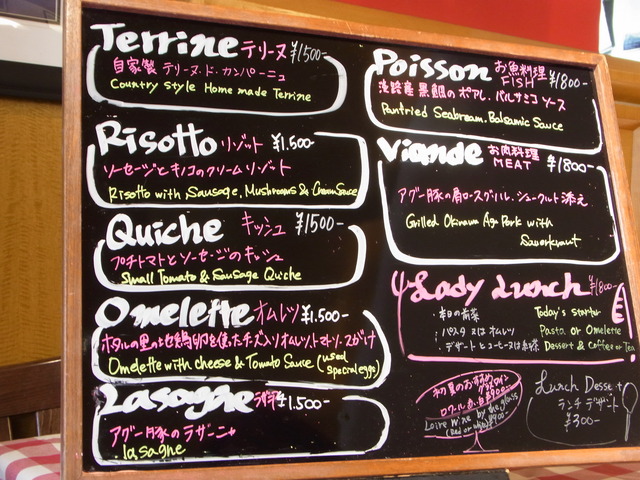 Terrine テリーヌ ¥1500-
自家製 テリーヌ・ド・カンパーニュ
Country style Home made Terrine
Risotto リゾット ¥1.500-
ソーセージとキノコのクリームリゾット
Risotto with Sausage, Mushrooms & Cream Sauce
Quiche キッシュ ¥1500-
プチトマトとソーセージのキッシュ
Small Tomato & Sausage Quiche
Omelette オムレツ ¥1.500-
ホタルの里の地鶏卵を使ったチーズ入りオムレツ、トマトソースがけ
Omelette with cheese & Tomato Sauce (used special eggs)
Lasagne ラザニア ¥1.500-
アグー豚のラザニャ
lasagne
Poisson お魚料理 FISH ¥1800-
淡路産 黒鯛のポアレ、バルサミコソース
Panfried Seabream, Balsamic Sauce
Viande お肉料理 MEAT ¥1800-
アグー豚の肩ロースグリル、シュークルト添え
Grilled Okinawa Agu Pork with
Sauerkraut
Lady Lunch ¥1800-
・本日の前菜 Today's Starter
・パスタ又はオムレツ Pasta or Omelette
・デザートとコーヒー又は紅茶 Dessert & Coffee or Tea
初夏のおすすめ
グラスワイン
Loire Wine by the glass
Lunch Dessert
ランチデザート
¥300-